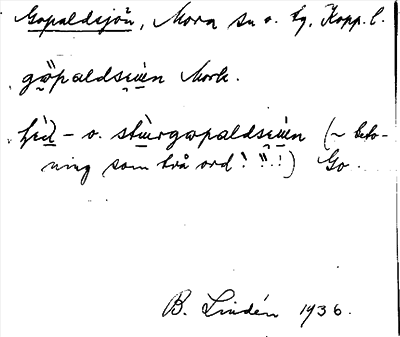 Gopaldsjön, Mora sn o. tg, Kopp. l.
gö̀paldsɛιέn Mork.
– o. stùrgɷpaldsɛιέn (~ beto-
ning som två ord! !) Go.
B. Lindén 1936.